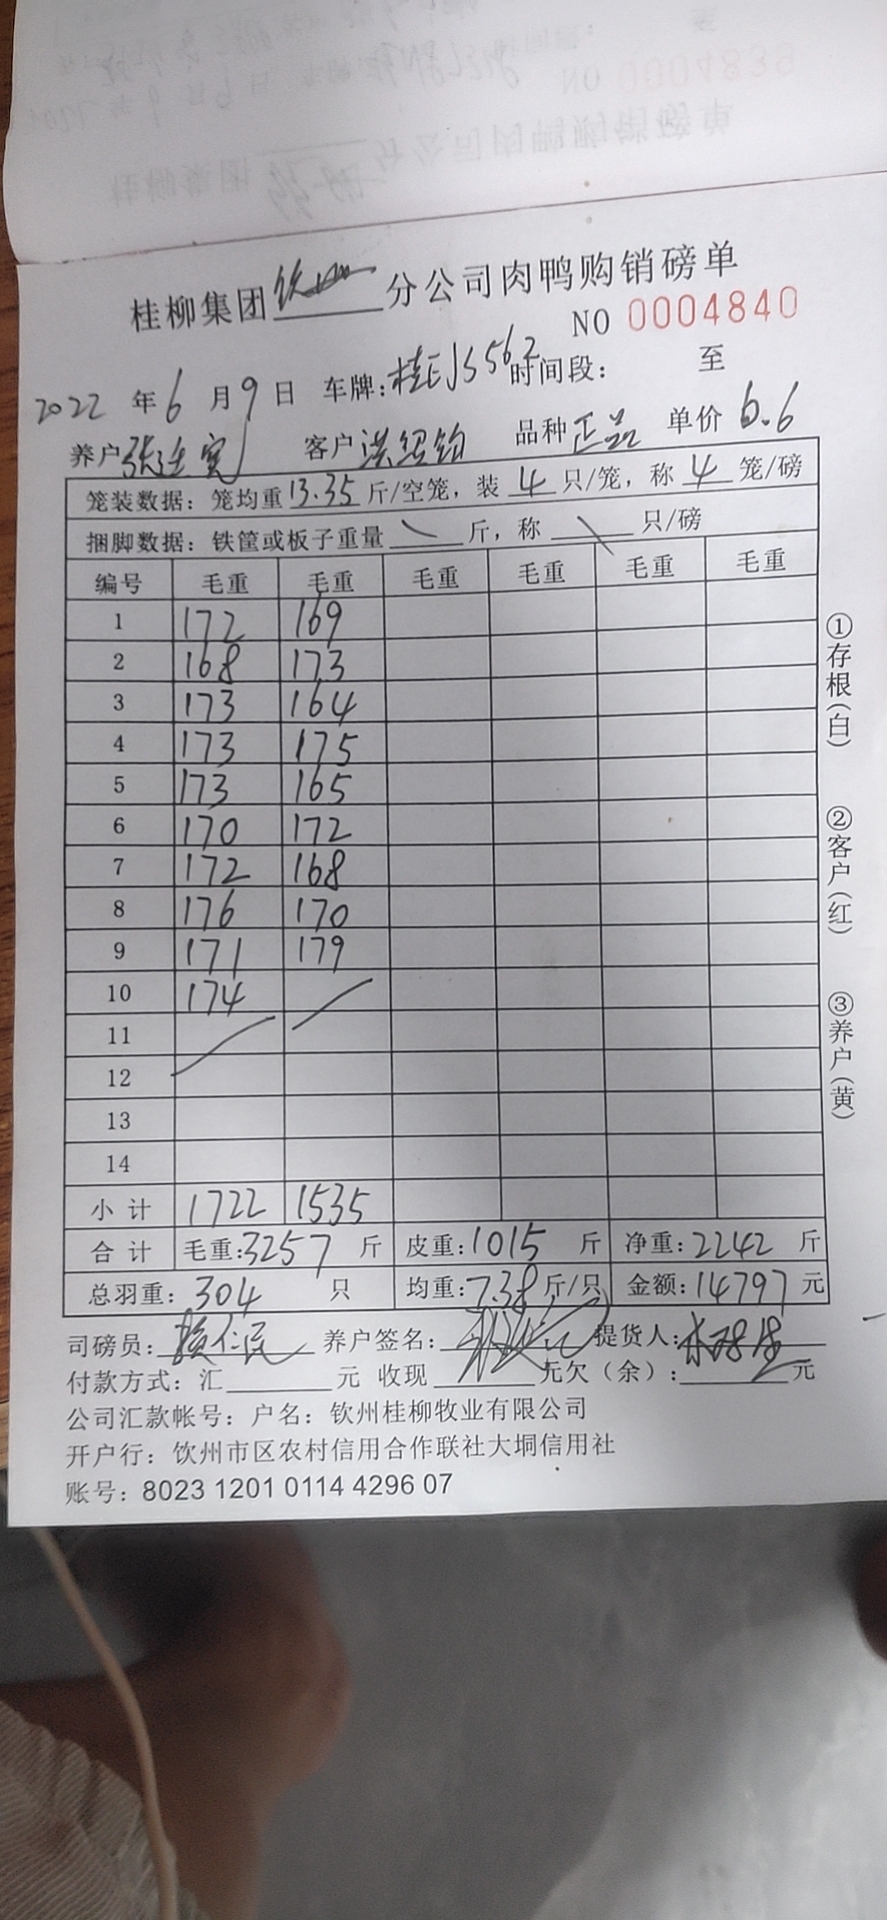 桂柳集团钦州分公司肉鸭购销磅单
NO 0004840
2022年6月9日 车牌:桂EJS562 时间段: 至
养户 客户 洪绍钧 品种 正品 单价 6.6
笼装数据:笼均重13.35斤/空笼,装4只/笼,称4笼/磅
捆脚数据:铁筐或板子重量 斤,称 只/磅
编号 毛重 毛重 毛重 毛重 毛重 毛重
1 172 169
2 168 173
3 173 164
4 173 175
5 173 165
6 170 172
7 172 168
8 176 170
9 171 179
10 174
11
12
13
14
小计 1722 1535
合计 毛重:3257斤 皮重:1015斤 净重:2242斤
总羽重:304只 均重:7.38斤/只 金额:14797元
司磅员: 养户签名: 提货人:
付款方式:汇 元 收现 元欠(余): 元
公司汇款帐号:户名:钦州桂柳牧业有限公司
开户行:钦州市区农村信用合作联社大垌信用社
账号:8023 1201 0114 4296 07
①存根(白)
②客户(红)
③养户(黄)
NO 0004839